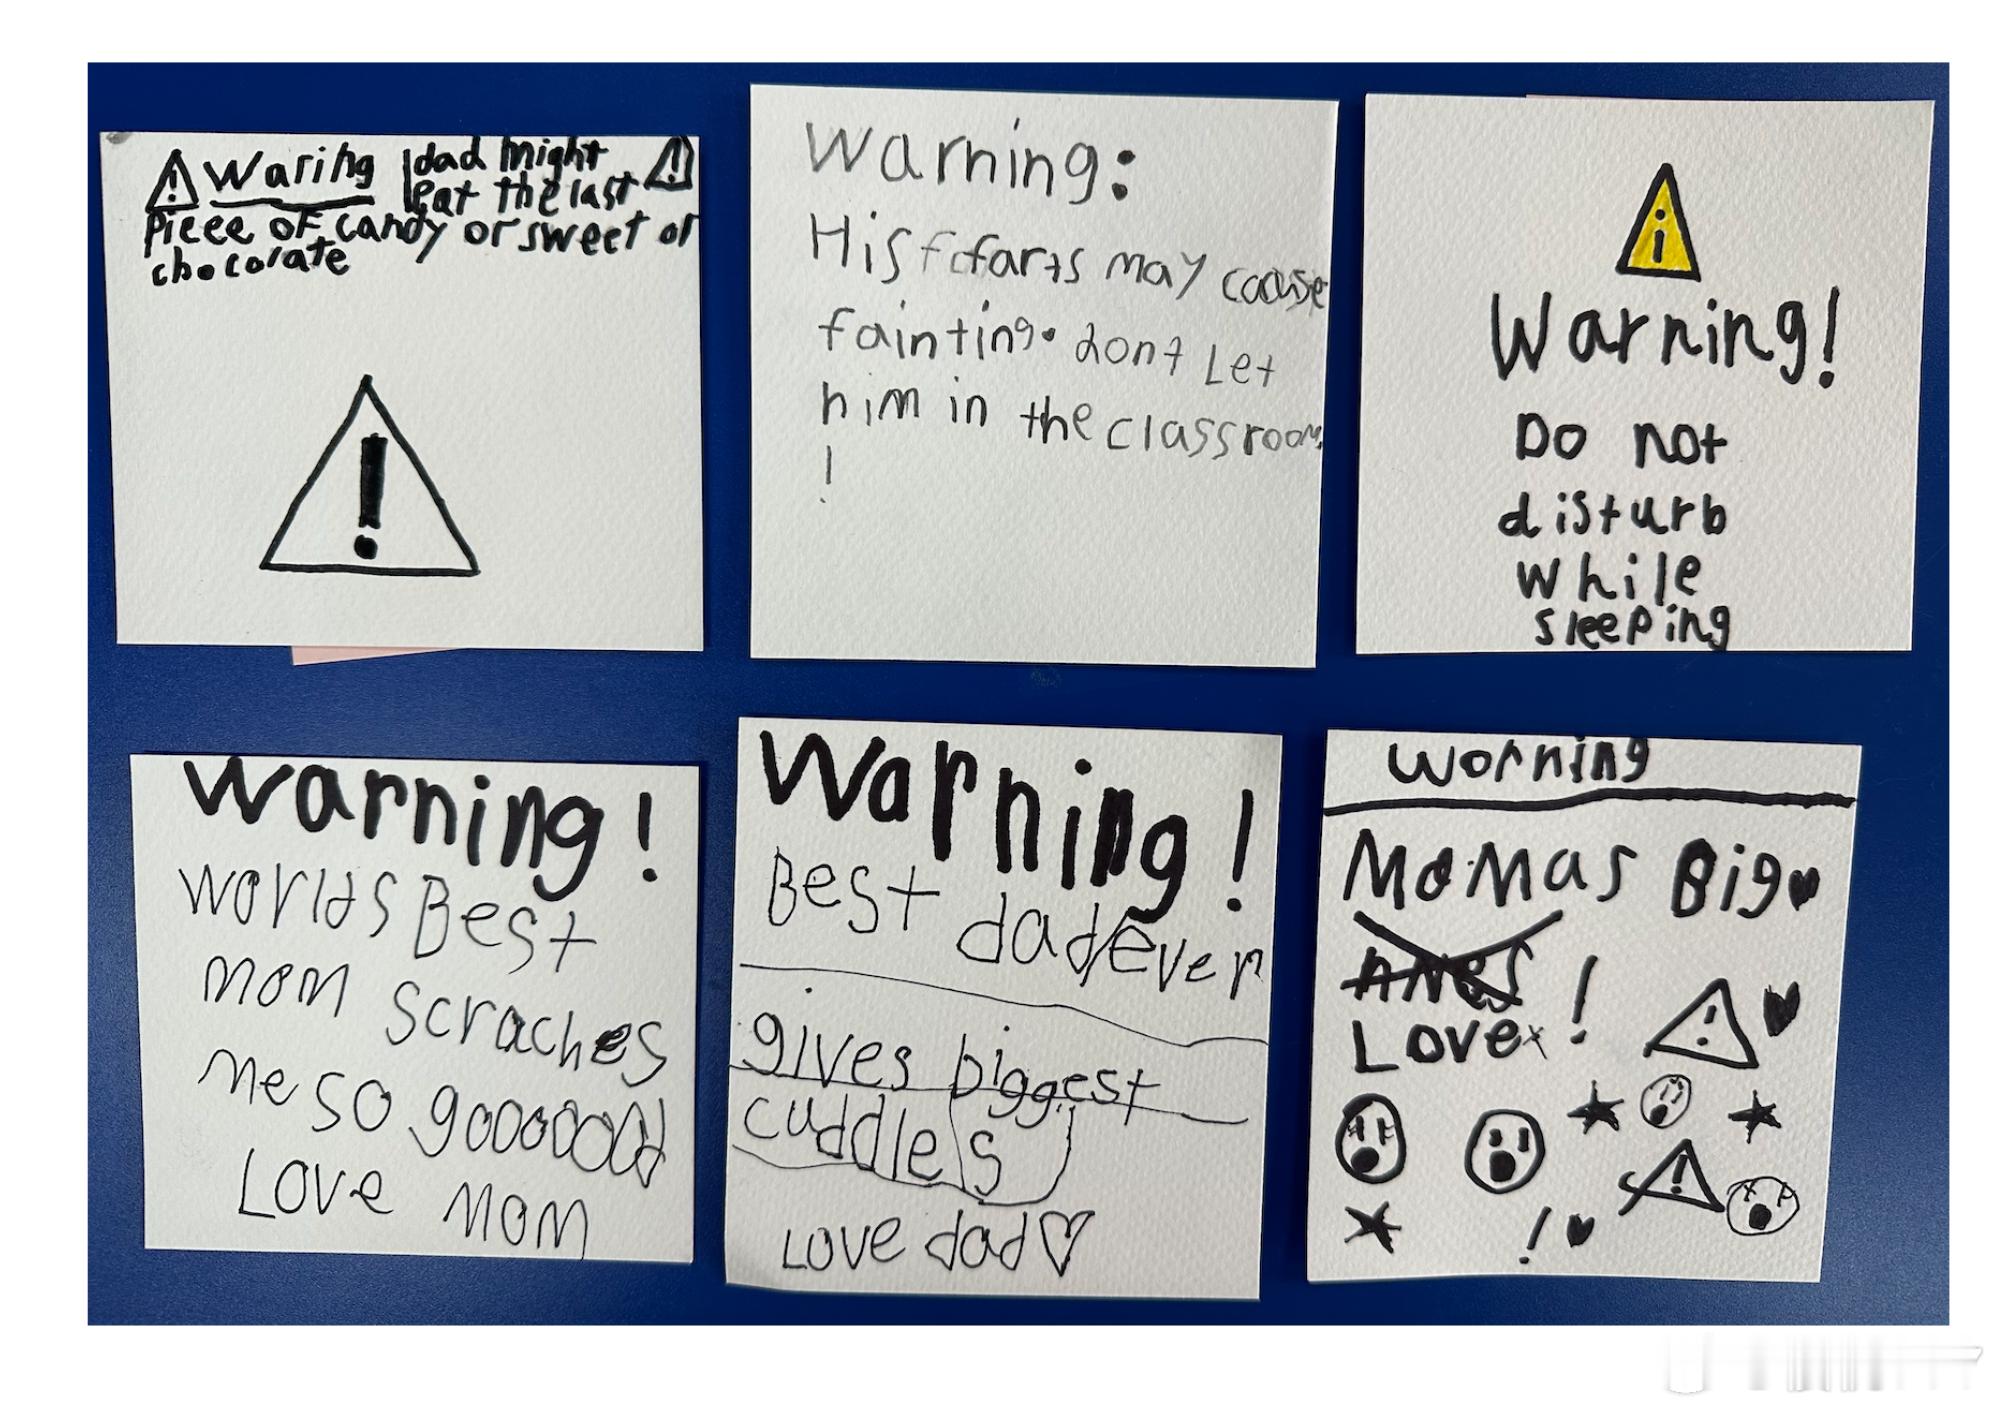 Waring dad might
eat the last
piece of candy or sweet or
chocolate
Warning:
His farts may cause
fainting. dont Let
him in the classroom
!
Warning!
Do not
disturb
while
sleeping
Warning!
Worlds Best
mom scraches
me so gooooood
Love mom
Warning!
Best dad ever
gives biggest
cuddles
Love dad
Worning
MoMas Big
Love !
!